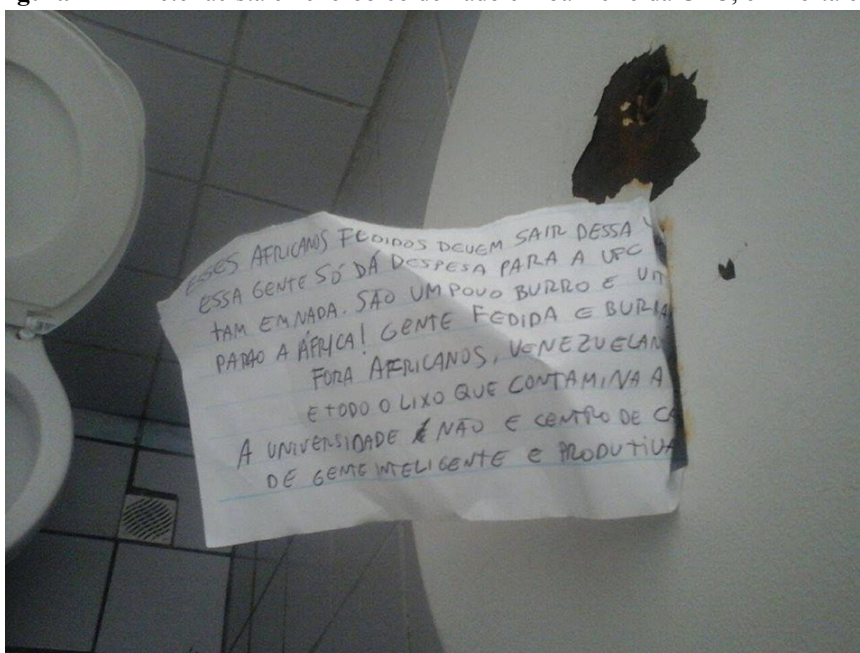 ESSES AFRICANOS FEDIDOS DEVEM SAIR DESSA
ESSA GENTE SÓ DÁ DESPESA PARA A UFC
TAM EM NADA. SÃO UM POVO BURRO E
PARÃO A ÁFRICA! GENTE FEDIDA E BURRA
FORA AFRICANOS, VENEZUELAN
E TODO O LIXO QUE CONTAMINA A
A UNIVERSIDADE NÃO E CENTRO DE
DE GENTE INTELIGENTE E PRODUTIVA